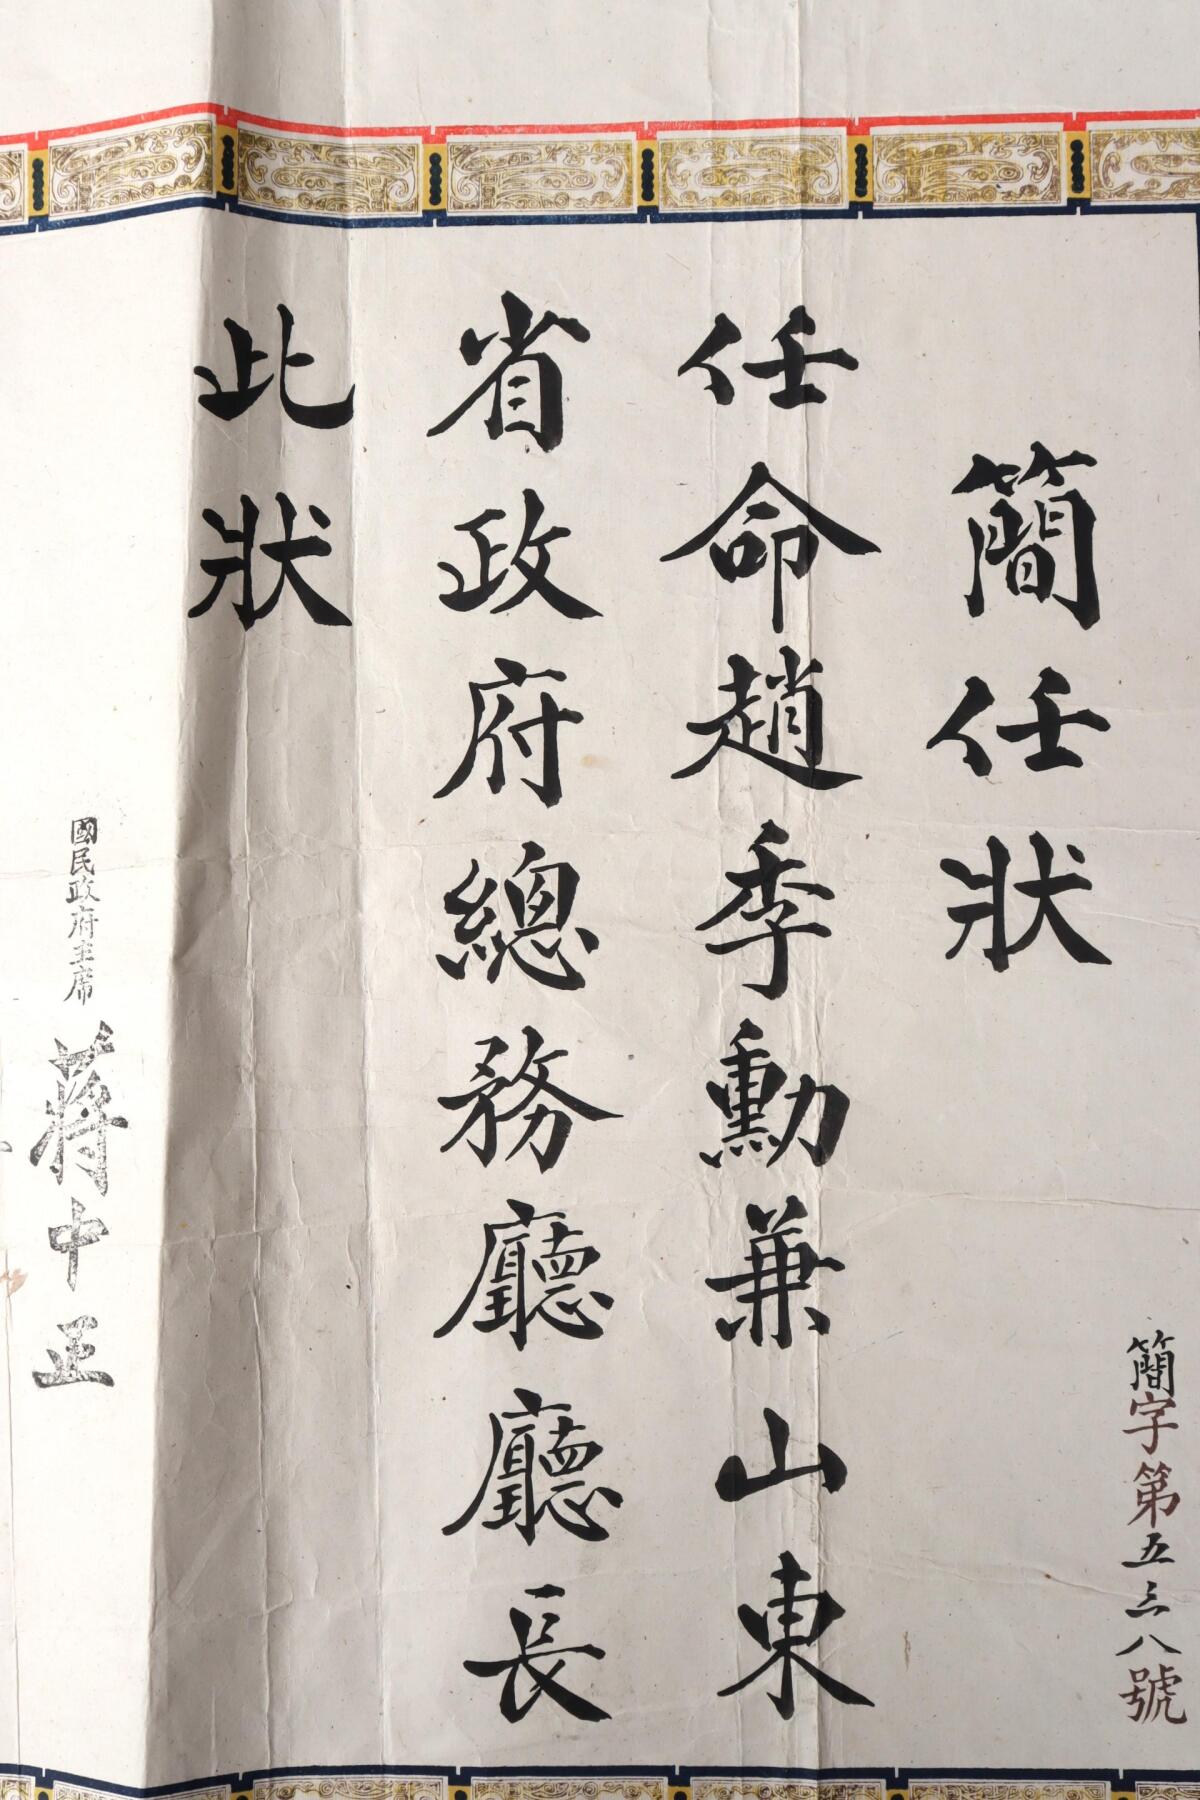 簡字第五三八號
簡任狀
任命趙季勳兼山東
省政府總務廳廳長
此狀
國民政府主席 蔣中正